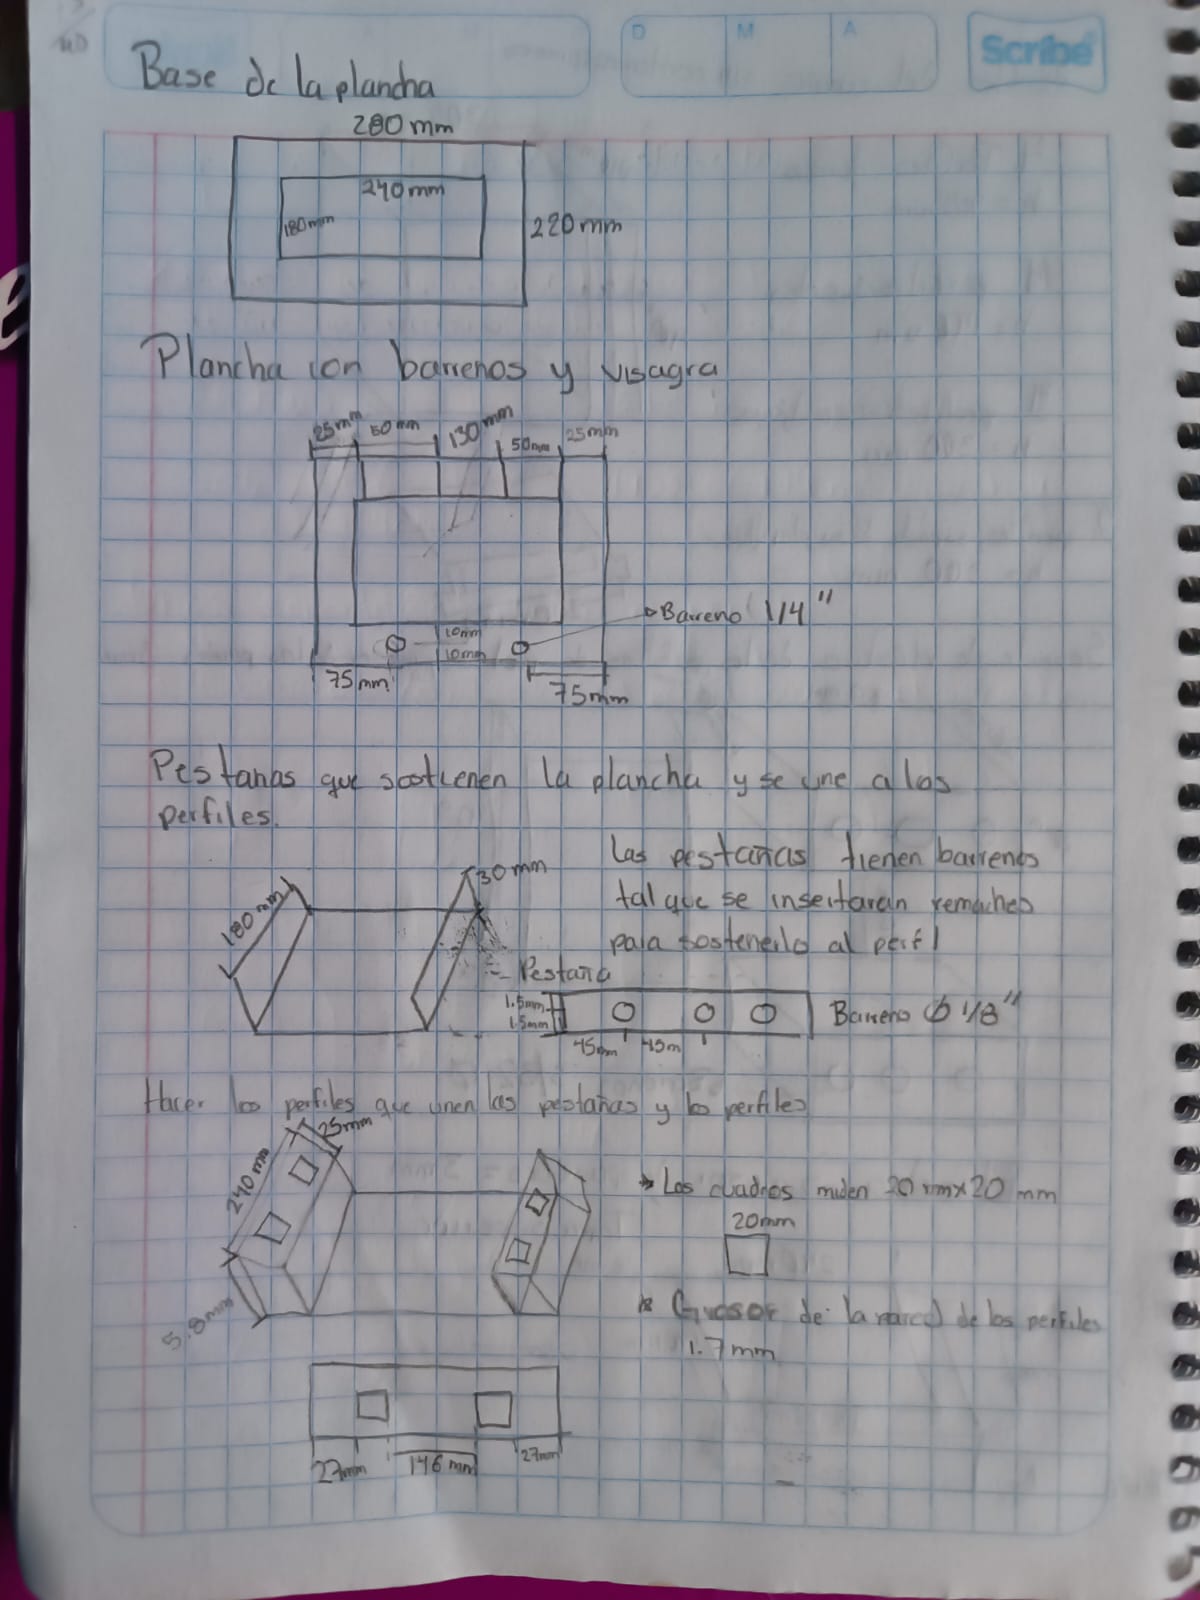 D M A
Scribe
Base de la plancha
280 mm
240 mm
180mm
220 mm
Plancha con barrenos y visagra
25mm 50mm 130mm 50mm 25mm
Barreno 1/4"
10mm
10mm
75mm
75mm
Pestanas que sostienen la plancha y se une a los
perfiles.
180mm
30mm
Las pestañas tienen barrenos
tal que se insertaran remaches
para sostenerlo al perfil
Pestaña
1.5mm
1.5mm
Barreno Ø 1/8"
45mm 45m
Hacer los perfiles que unen las pestañas y lo perfiles
25mm
240 mm
5.8mm
Los cuadros miden 20mm x 20 mm
20mm
Grosor de la pared de los perfiles
1.7mm
27mm 146 mm 27mm